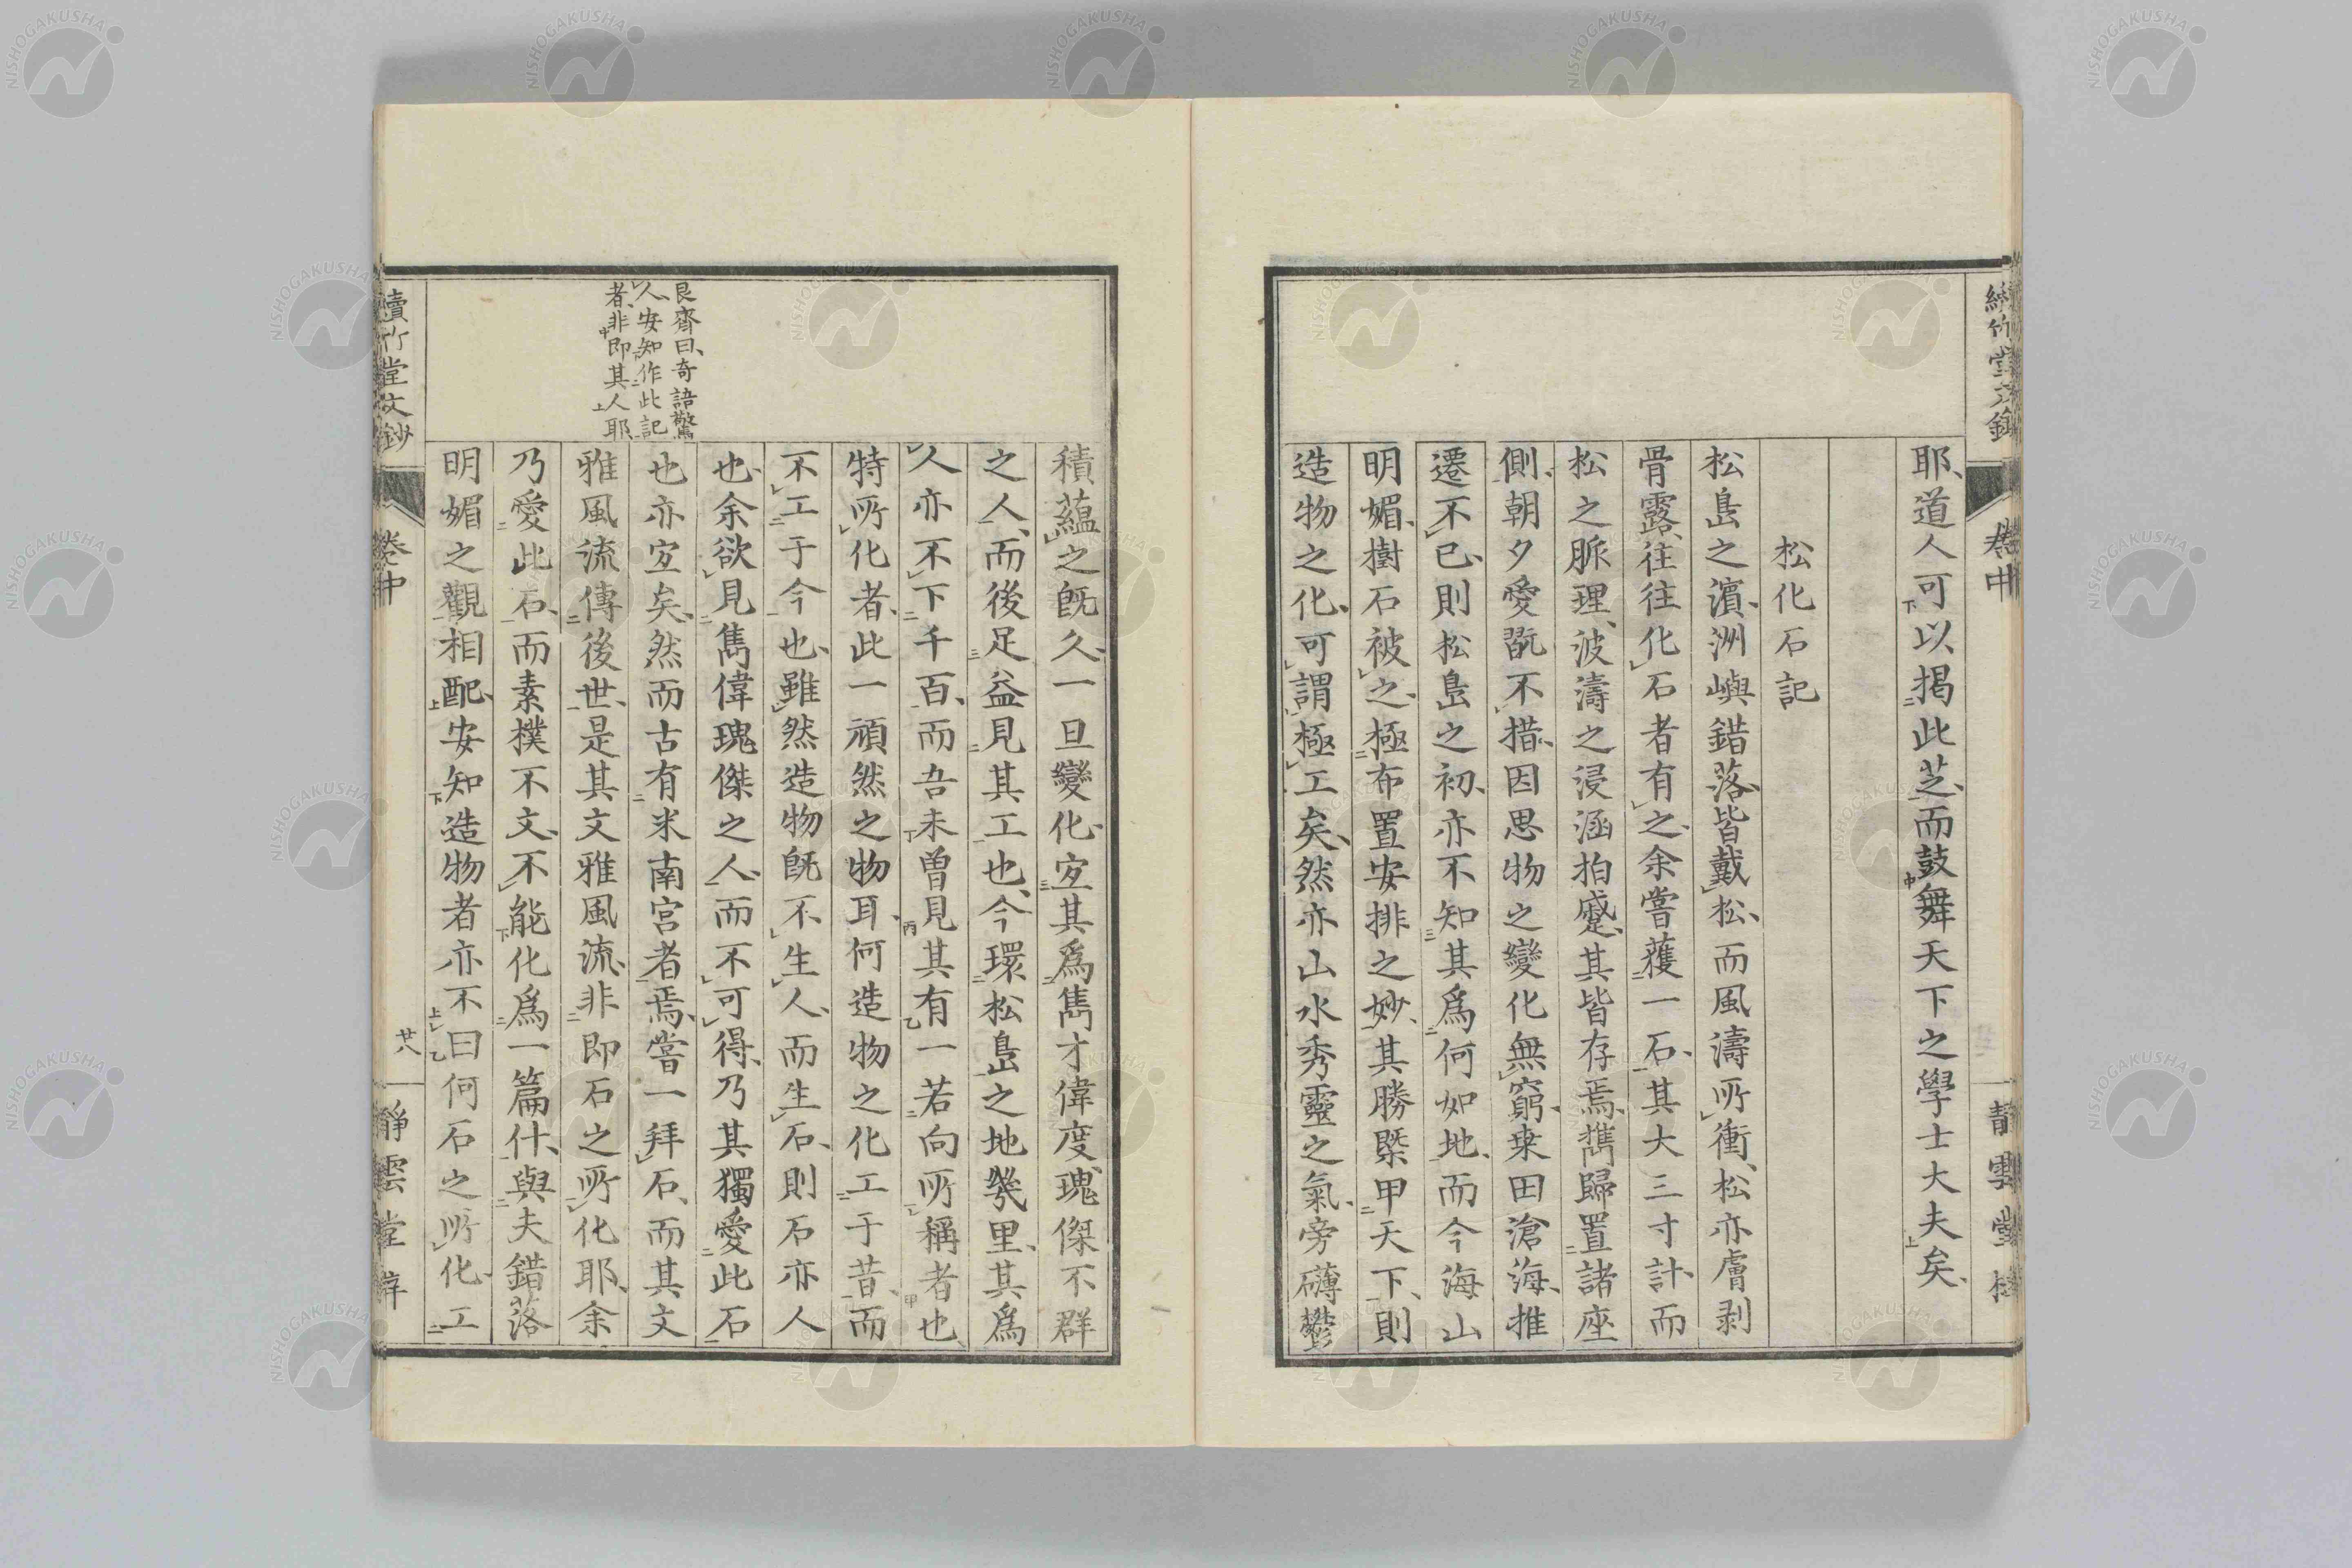 耶道人可以揭此芝而鼓舞天下之學士大夫矣
松化石記
松島之濵洲嶼錯落皆戴松而風濤所衝松亦膚剥
骨露往往化石者有之余嘗獲一石其大三寸計而
松之脈理波濤之浸涵拍蹙其皆存焉携歸置諸座
側朝夕愛翫不措因思物之變化無窮桒田滄海推
遷不已則松島之初亦不知其爲何如地而今海山
明媚樹石被之極布置安排之妙其勝槩甲天下則
造物之化可謂極工矣然亦山水秀靈之氣旁礴鬱
積蘊之既久一旦變化宜其爲雋才偉度瑰傑不群
之人而後足益見其工也今環松島之地幾里其爲
人亦不下千百而吾未曽見其有一若向所稱者也
特所化者此一頑然之物耳何造物之化工于昔而
不工于今也雖然造物既不生人而生石則石亦人
也余欲見雋偉瑰傑之人而不可得乃其獨愛此石
也亦宜矣然而古有米南宮者焉嘗一拜石而其文
雅風流傳後世是其文雅風流非即石之所化耶余
乃愛此石而素樸不文不能化爲一篇什與夫錯落
明媚之觀相配安知造物者亦不曰何石之所化工
艮齊曰奇語驚
人安知作此記
者非即其人耶
續竹堂文鈔
卷中
廿八
靜雲堂梓